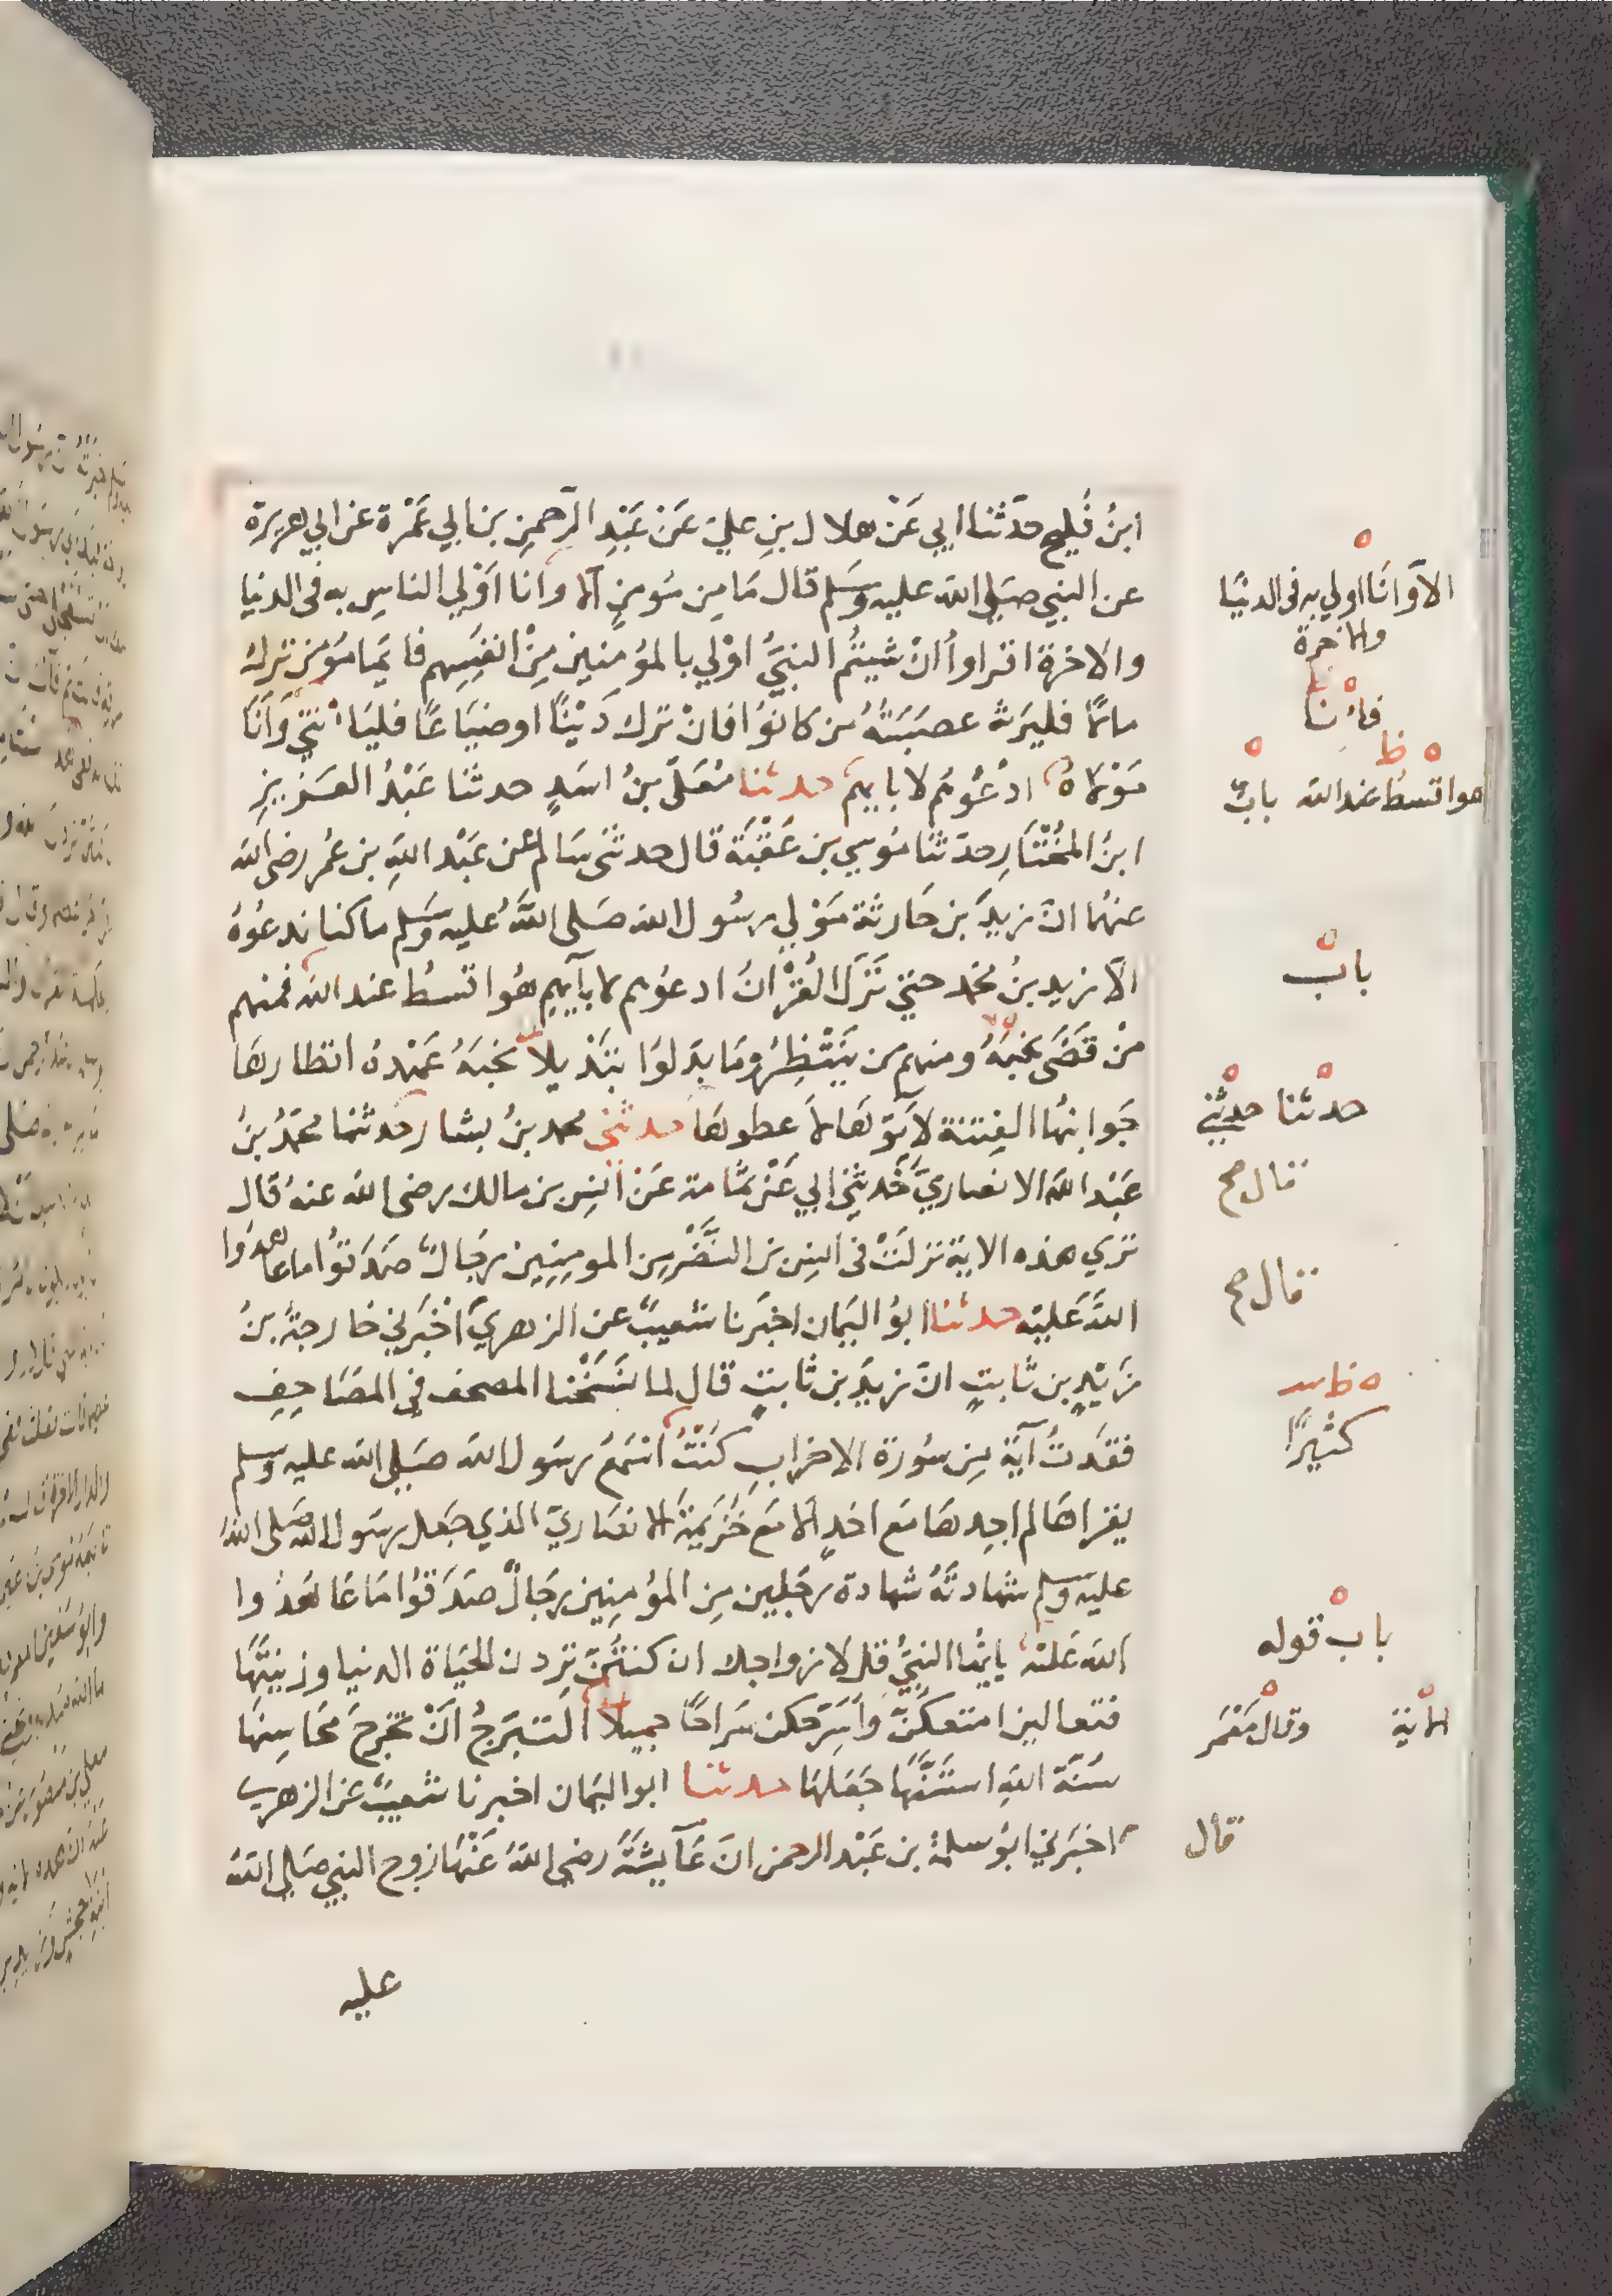 ابنُ فُليح حدّثنا ابي عَنْ هلال بنِ عليّ عَنْ عَبْدِ الرّحمنِ بن ابي عَمْرة عن ابي هريرة
عن النبي صَلى الله عليه وسَلم قال مَا مِن مُومنٍ الا وانا اوْلي الناسِ به فى الدنيا
والاخرة اقراوا انْ شيتُم النبيُّ اوْلي بالمؤمنين مِنْ انفسِهم فايّما مؤمن ترك
مالًا فليرَثه عصَبَتُهُ من كانوُا فانْ ترك دَيْنًا اوضيَاعًا فليَاْتني وَانَا
مَوْلاهُ ادْعُوهُم لابايهم حدثنا مُعَلّى بنُ اسَدٍ حدثنا عَبْدُ العَزيزِ
ابنُ المخُتَارِ حدّثنا مُوسي بن عُقْبَة قال حدثنى سَالم عن عَبْد اللهِ بن عُمر رضى الله
عنهُما انّ زيدَ بن حَارثة مَوْلي رسُول الله صَلى اللهُ عليه وسَلم ما كنا ندعُوهُ
الّا زيد بنُ محَمد حتي نَزَلَ القُرْانُ ادعُوهم لابآيهم هُو اقسطُ عند الله فمنهم
مَنْ قَضَى نحْبَهُ ومنهم من يَنْتَظِرُ ومَا بدَلوُا تبْديلا نحْبَهُ عَهْدهُ اقطارهَا
جَوانبهُا الفِتنة لآتوْهَا لاَعطوهَا حدثنى محمد بنُ بشار حدثنا محمَّدُ بنُ
عَبْد الله الانصاريّ حَدثني ابي عَنْ ثُمَامة عَنْ انسِ بن مالك رضى الله عنهُ قال
نري هذه الاية نزلَتْ فى انسِ بن النَّضْرِ مِن المومِنِين رجَالٌ صَدَقوُا ما عاهدُوا
اللهَ عَليْه حدثنا ابوُ اليَمان اخبَرنا شعيبٌ عن الزهريّ اخْبَرني خارجَةُ بنُ
زَيْدِ بن ثابتٍ انّ زيدَ بن ثابتٍ قال لما نسَخْنا المصحف فِي المصَاحِفِ
فقَدتُ آيَة مِن سُورة الاحْزابِ كُنْتُ اسْمَعُ رسَول الله صَلي الله عليه وسلم
يقراهَا لم اجِدهَا مَع احَدٍ الا مَع خُزَيمَة الانصَاريّ الذي جَعل رسَول الله صَلى اللهُ
عليه وسلم شهادتَهُ شهادة رجُلين مِنِ المؤمِنِين رجَالٌ صَدَقوُا مَا عَاهَدوا
الله عَليْه يايهُّا النبيُّ قل لازواجك ان كنتُنّ تردن الحيَاة الدنيا وزينَتَهَا
فتعالين امتعكُنّ وأسَرّحكن سَراحًا جميلا التبَرجُ انْ تخرجَ مَحَاسِنهَا
سُنَّة اللهِ استَنَّهَا جَعَلهَا حدثنا ابو اليَمان اخبرنا شعيبٌ عن الزهري
اخبَرني ابوُ سلمةُ بن عَبْد الرحمن انّ عَآيشَةَ رضي اللهُ عَنْهَا زوج النبي صَلي اللهُ
عليه
الا وانَا اولي به فى الدنيَا
والاخرة
فانا
هو اقسطُ عند الله بابٌ
بابٌ
حدثنا حدثني
قال صح
قال صح
كثيرًا
باب قوله
الاية وقال مَعْمَر
قال